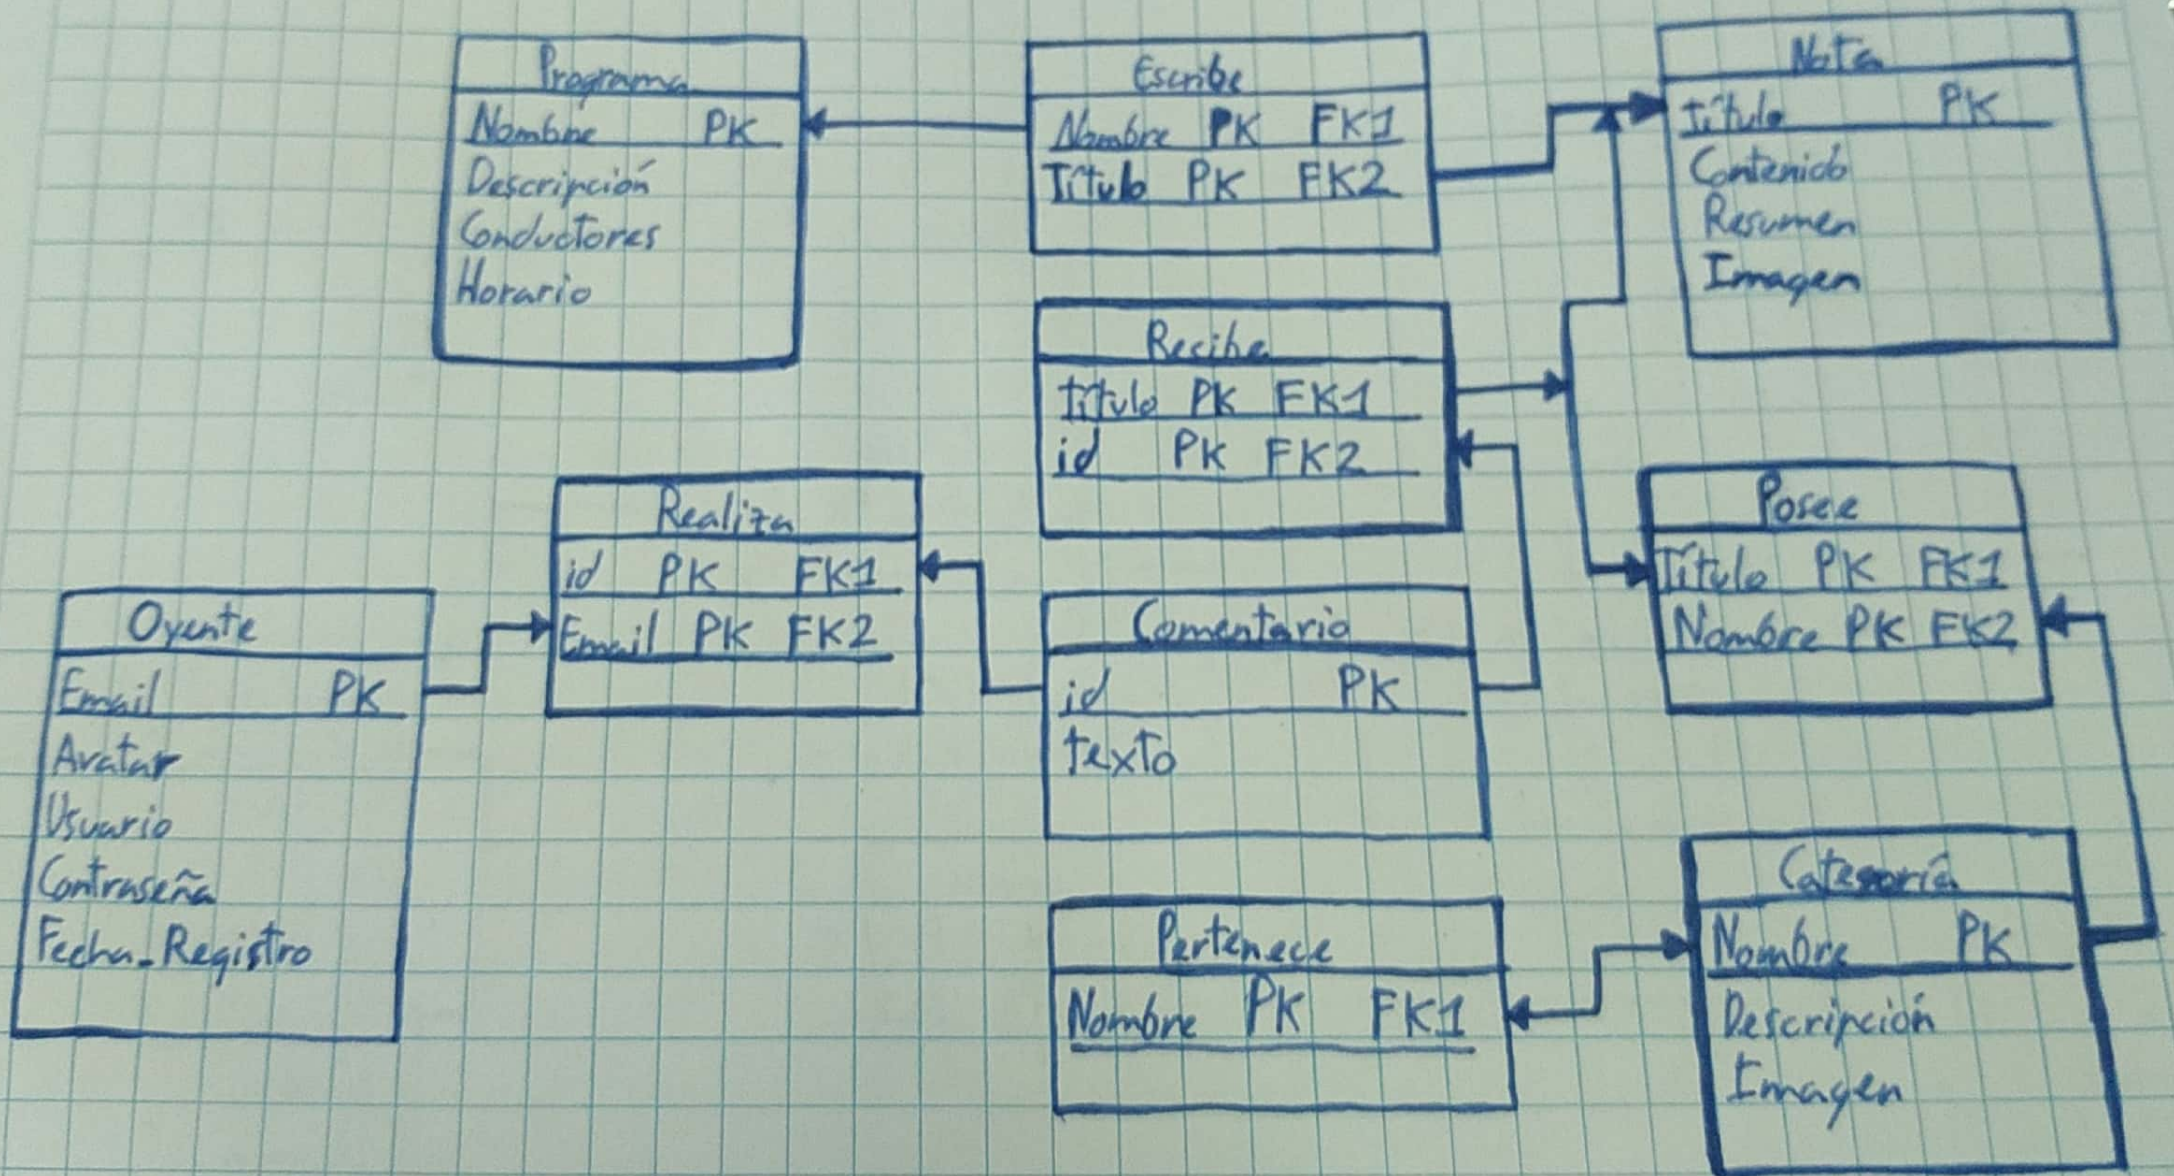 Programa
Nombre PK
Descripción
Conductores
Horario
Escribe
Nombre PK FK1
Título PK FK2
Nota
Título PK
Contenido
Resumen
Imagen
Recibe
Título PK FK1
id PK FK2
Realiza
id PK FK1
Email PK FK2
Posee
Título PK FK1
Nombre PK FK2
Oyente
Email PK
Avatar
Usuario
Contraseña
Fecha_Registro
Comentario
id PK
texto
Pertenece
Nombre PK FK1
Categoría
Nombre PK
Descripción
Imagen